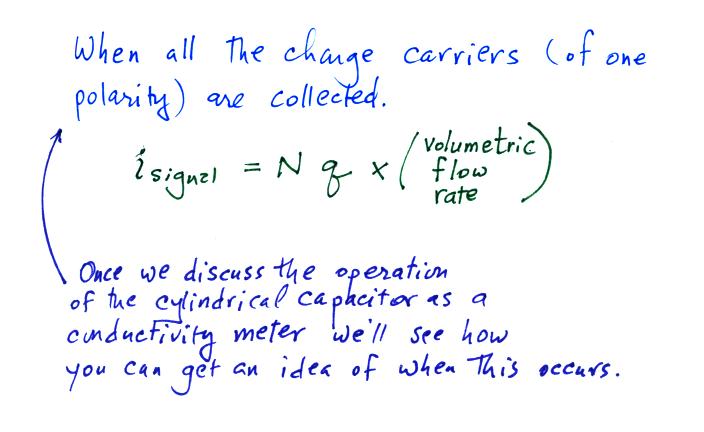 When all the charge carriers (of one
polarity) are collected.
i signal = N q x (volumetric flow rate)
Once we discuss the operation
of the cylindrical capacitor as a
conductivity meter we'll see how
you can get an idea of when this occurs.